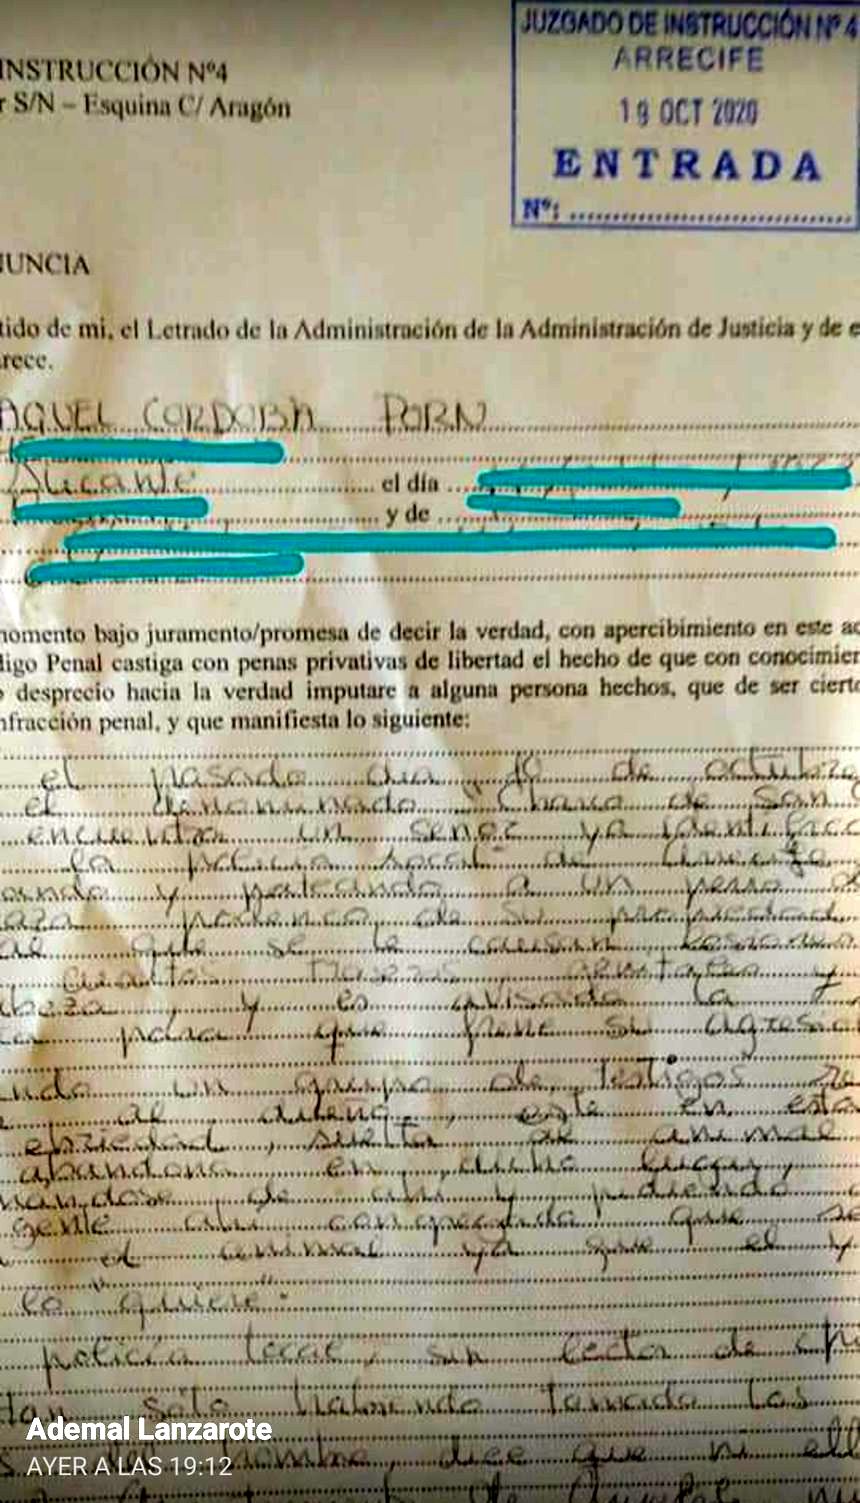 JUZGADO DE INSTRUCCIÓN Nº 4
ARRECIFE
19 OCT 2020
ENTRADA
Nº:
INSTRUCCIÓN Nº4
r S/N – Esquina C/ Aragón
NUNCIA
tido de mi, el Letrado de la Administración de la Administración de Justicia y de e
rece.
AQUEL CORDOBA PORN
Alicante el día
y de
nomento bajo juramento/promesa de decir la verdad, con apercibimiento en este ac
digo Penal castiga con penas privativas de libertad el hecho de que con conocimien
o desprecio hacia la verdad imputare a alguna persona hechos, que de ser cierto
nfracción penal, y que manifiesta lo siguiente:
el pasado dia de octubre
el denominado Charco de San
encuentra un señor ya identific
la policia local de Arrecife
ando y pateando a un perro
aza podenco, de su propiedad
que se le
cuantas
beza, y es avisada la
para que frene su agresi
ndo un grupo de testigos
al dueño, este en esta
ebriedad, suelta al animal
abandona en dicho lugar,
nandose de alli y pidiendo
gente alli congregada que se
el animal ya que el y
lo quiere".
policía local, sin lector de chi
tan solo habiendo tomado los
s del hombre, dice que ni ell
Ademal Lanzarote
AYER A LAS 19:12